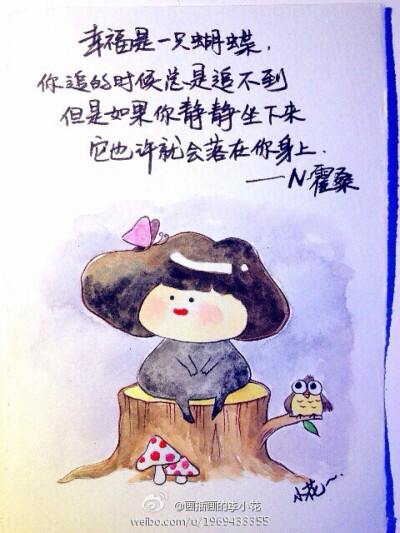 幸福是一只蝴蝶,
你追的时候总是追不到
但是如果你静静坐下来
它也许就会落在你身上.
——N·霍桑
小花~
@画插画的李小花
weibo.com/u/1969433355